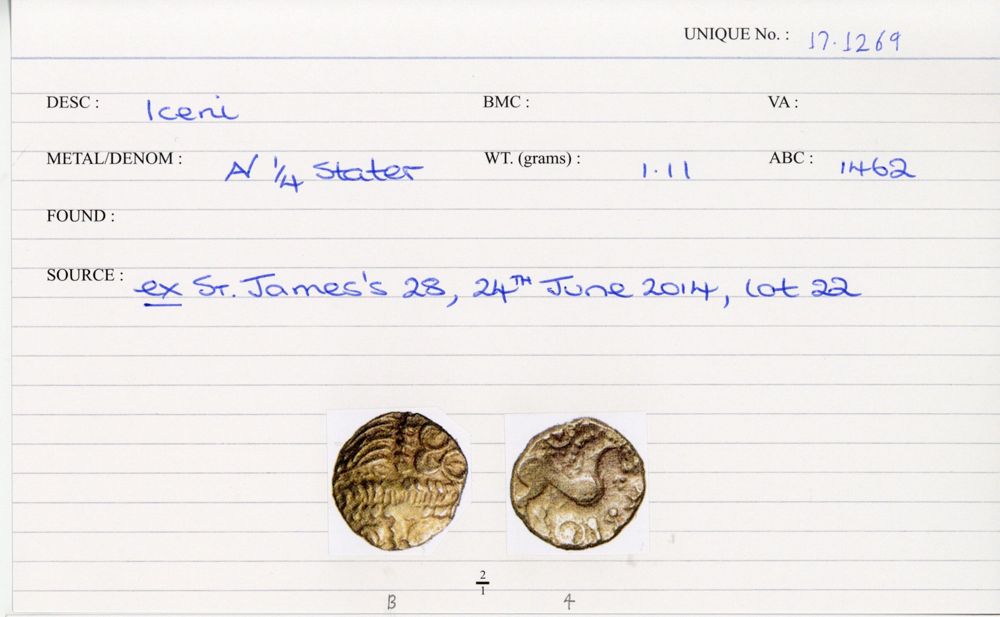 UNIQUE No. : 17.1269
DESC : Iceni BMC : VA :
METAL/DENOM : A/ 1/4 Stater WT. (grams) : 1.11 ABC : 1462
FOUND :
SOURCE : ex St. James's 28, 24TH June 2014, lot 22
2/1
B 4